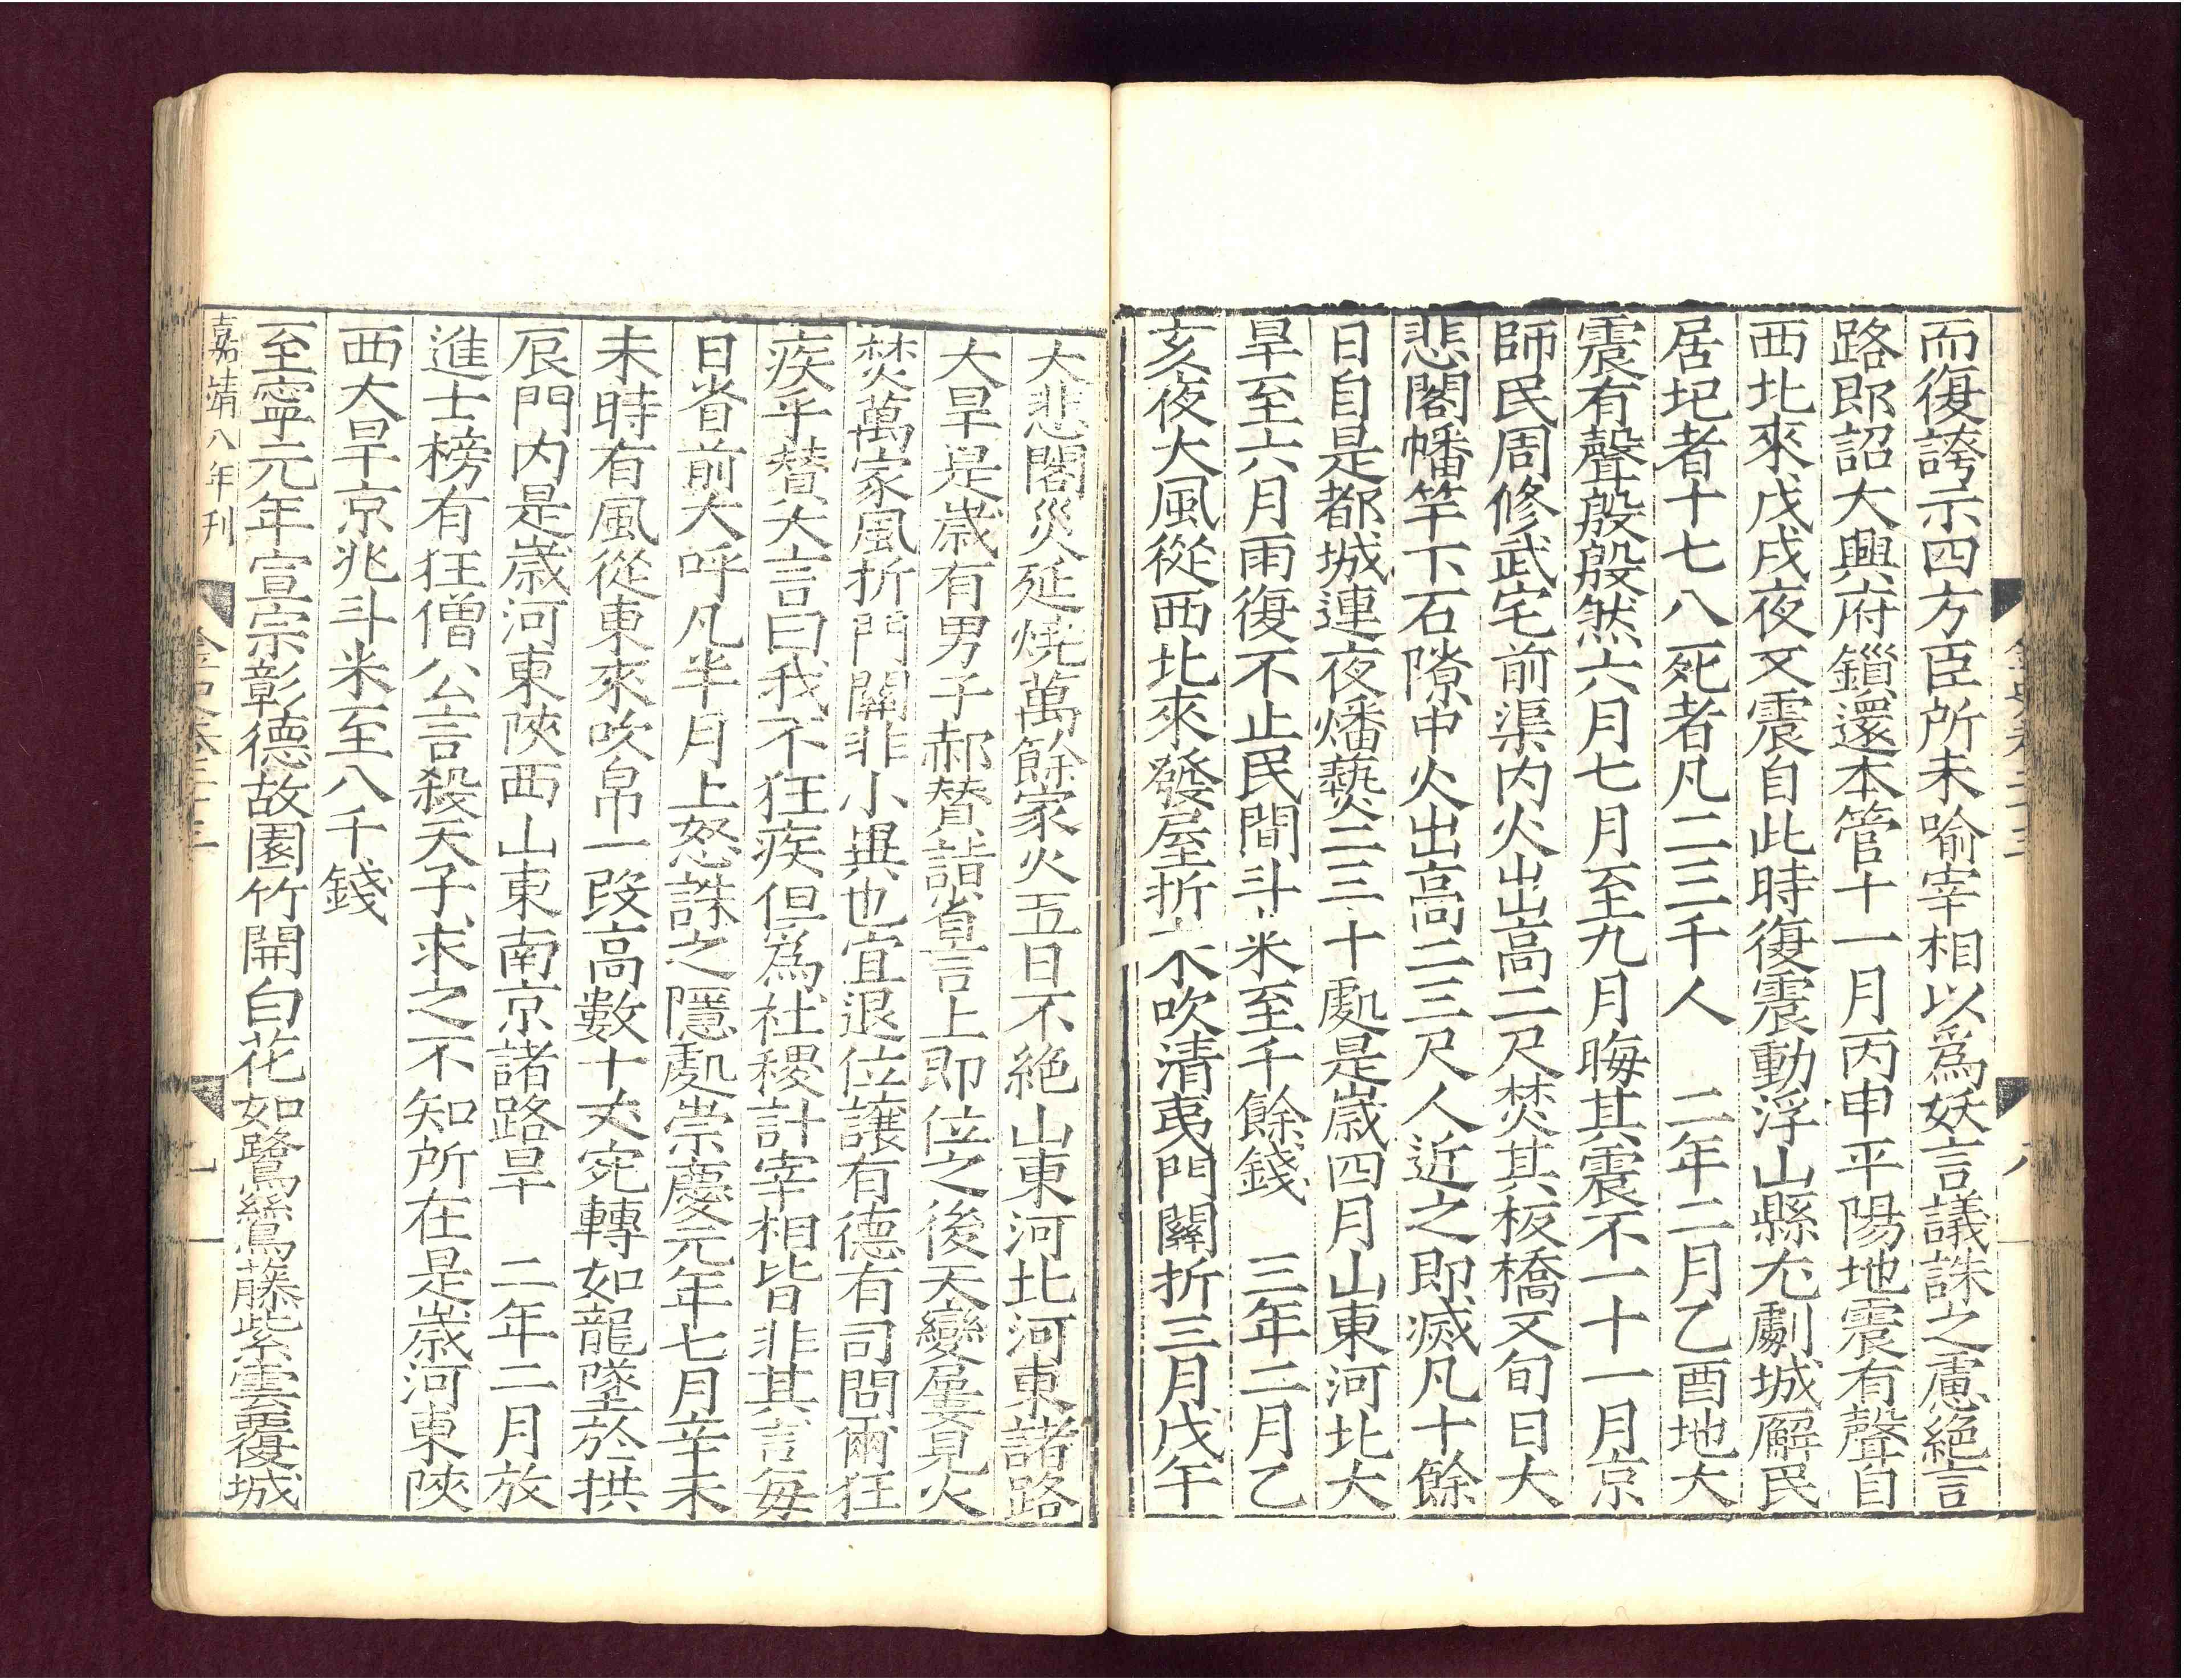 而復誇示四方臣所未喻宰相以爲妖言議誅之慮絶言
路郎詔大興府鎻還本管十一月丙申平陽地震有聲自
西北來戊戌夜又震自此時復震動浮山縣尤劇城廨民
居圮者十七八死者凡二三千人　二年二月乙酉地大
震有聲殷殷然六月七月至九月晦其震不一十一月京
師民周修武宅前渠内火出高二尺焚其板橋又旬日大
悲閣幡竿下石隙中火出高二三尺人近之即滅凡十餘
日自是都城連夜燔爇二三十處是嵗四月山東河北大
旱至六月雨復不止民間斗米至千餘錢　三年二月乙
亥夜大風從西北來發屋折木吹清夷門關折三月戊午
大悲閣災延燒萬餘家火五日不絶山東河北河東諸路
大旱是嵗有男子郝贊詣省言上即位之後天變屢見火
焚萬家風折門關非小異也宜退位讓有德有司問爾狂
疾乎贊大言曰我不狂疾但為社稷計宰相皆非其言每
日省前大呼凡半月上怒誅之隱處崇慶元年七月辛未
未時有風從東來吹帛一段高數十丈宛轉如龍墜於拱
辰門内是嵗河東陜西山東南京諸路旱　二年二月放
進士榜有狂僧公言殺天子求之不知所在是嵗河東陜
西大旱京兆斗米至八千錢
至寧元年宣宗彰德故園竹開白花如鷺鷥藤紫雲覆城
嘉靖八年刊
金史卷二十三
九
金史卷二十三
八